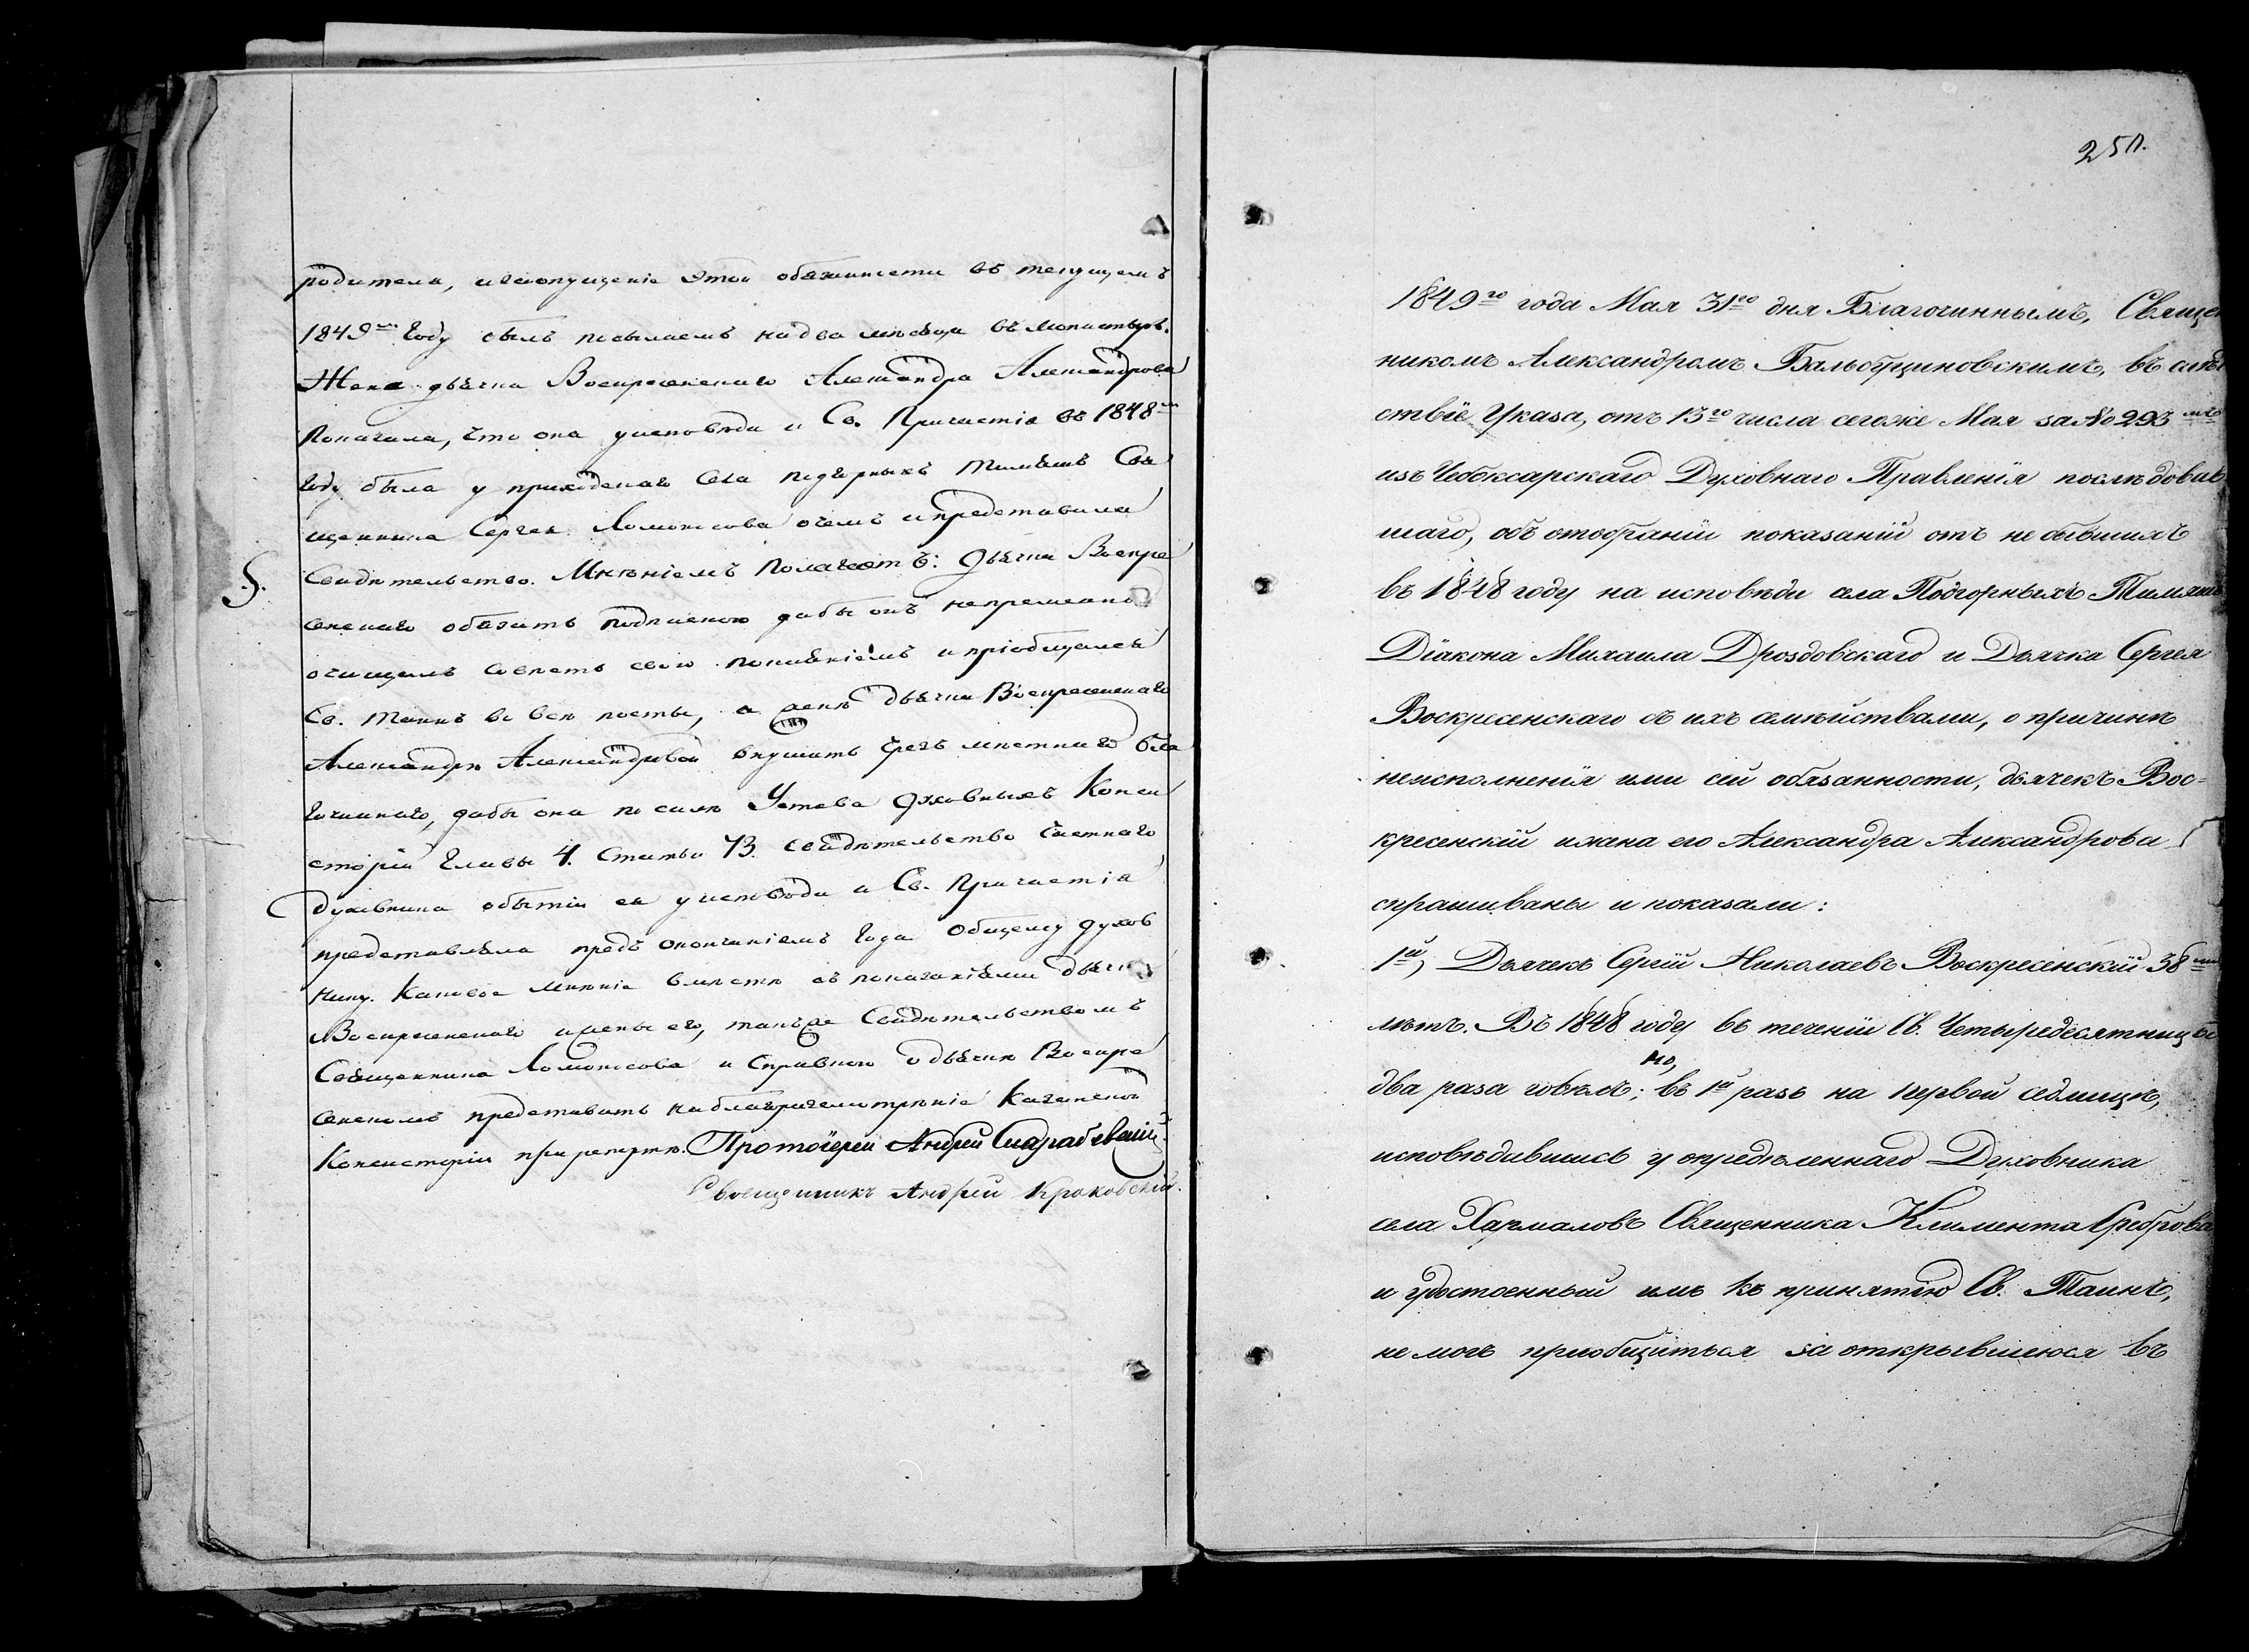 родителя, и за опущеніе этой обязанности въ текущемъ
1849мъ Году былъ посылаемъ на два мѣсяца въ монастырь.
Жена дьячка Воскресенскаго Александра Александрова
показала, что она у исповѣди и Св. Причастія въ 1848мъ
Году была у приходскаго села Подгорныхъ Тимяшъ Свя
щенника Сергея Ломоносова о чемъ и представила
Свидѣтельство. Мнѣніемъ Полагаетъ: Дьячка Воскре
5.
сенскаго обязать подпискою дабы онъ непременно
очищалъ совѣсть свою покаяніемъ и пріобщался
Св. Таинъ во всѣ посты, а женѣ дьячка Воскресенскаго
Александрѣ Александровой внушить чрезъ мѣстнаго бла
гочиннаго, дабы она по силѣ Устава Духовныхъ Конси
сторій Главы 4. Статьи 13. свидѣтельство частнаго
духовника о бытіи ея у исповѣди и Св. Причастія
представляла предъ окончаніемъ Года общему духов
нику. Каковое мнѣніе вмѣстѣ съ показаніями дьячка
Воскресенскаго и жены его, также Свидѣтельствомъ
Священника Ломоносова и Справкою о дьячкѣ Воскре
сенскомъ представить на благоразсмотрѣніе Казанской
Консисторіи при репортѣ. Протоіерей Андрей
Священникъ Андрей Кроковскій.
25 л.
1849го года Мая 31го дня Благочиннымъ, Священ
никомъ Александромъ въ слѣд
ствіе Указа, отъ 13го числа сегоже Мая за № 293мъ
изъ Чебоксарскаго Духовнаго Правленія послѣдовав
шаго, объ отобраніи показаній отъ не бывшихъ
въ 1848 году на исповѣди села Подгорныхъ Тимяшъ
Діакона Михаила Дроздовскаго и Дьячка Сергея
Воскресенскаго съ ихъ семѣйствами, о причинѣ
неисполненія ими сей обязанности, дьячекъ Вос=
кресенскій и жена его Александра Александрова
спрашиваны и показали:
1й, Дьячекъ Сергій Николаевъ Воскресенскій 38ми
лѣтъ. Въ 1848 году въ теченіи Св. Четыредесятницы
но,
два раза говелъ; въ 1й разъ на первой седмицѣ,
исповѣдавшись у опредѣленнаго Духовника
села Хармаловъ Священника Климента Среброва
и удостоенный имъ къ принятію Св. Таинъ,
не могъ приобщиться за открывшеюся въ